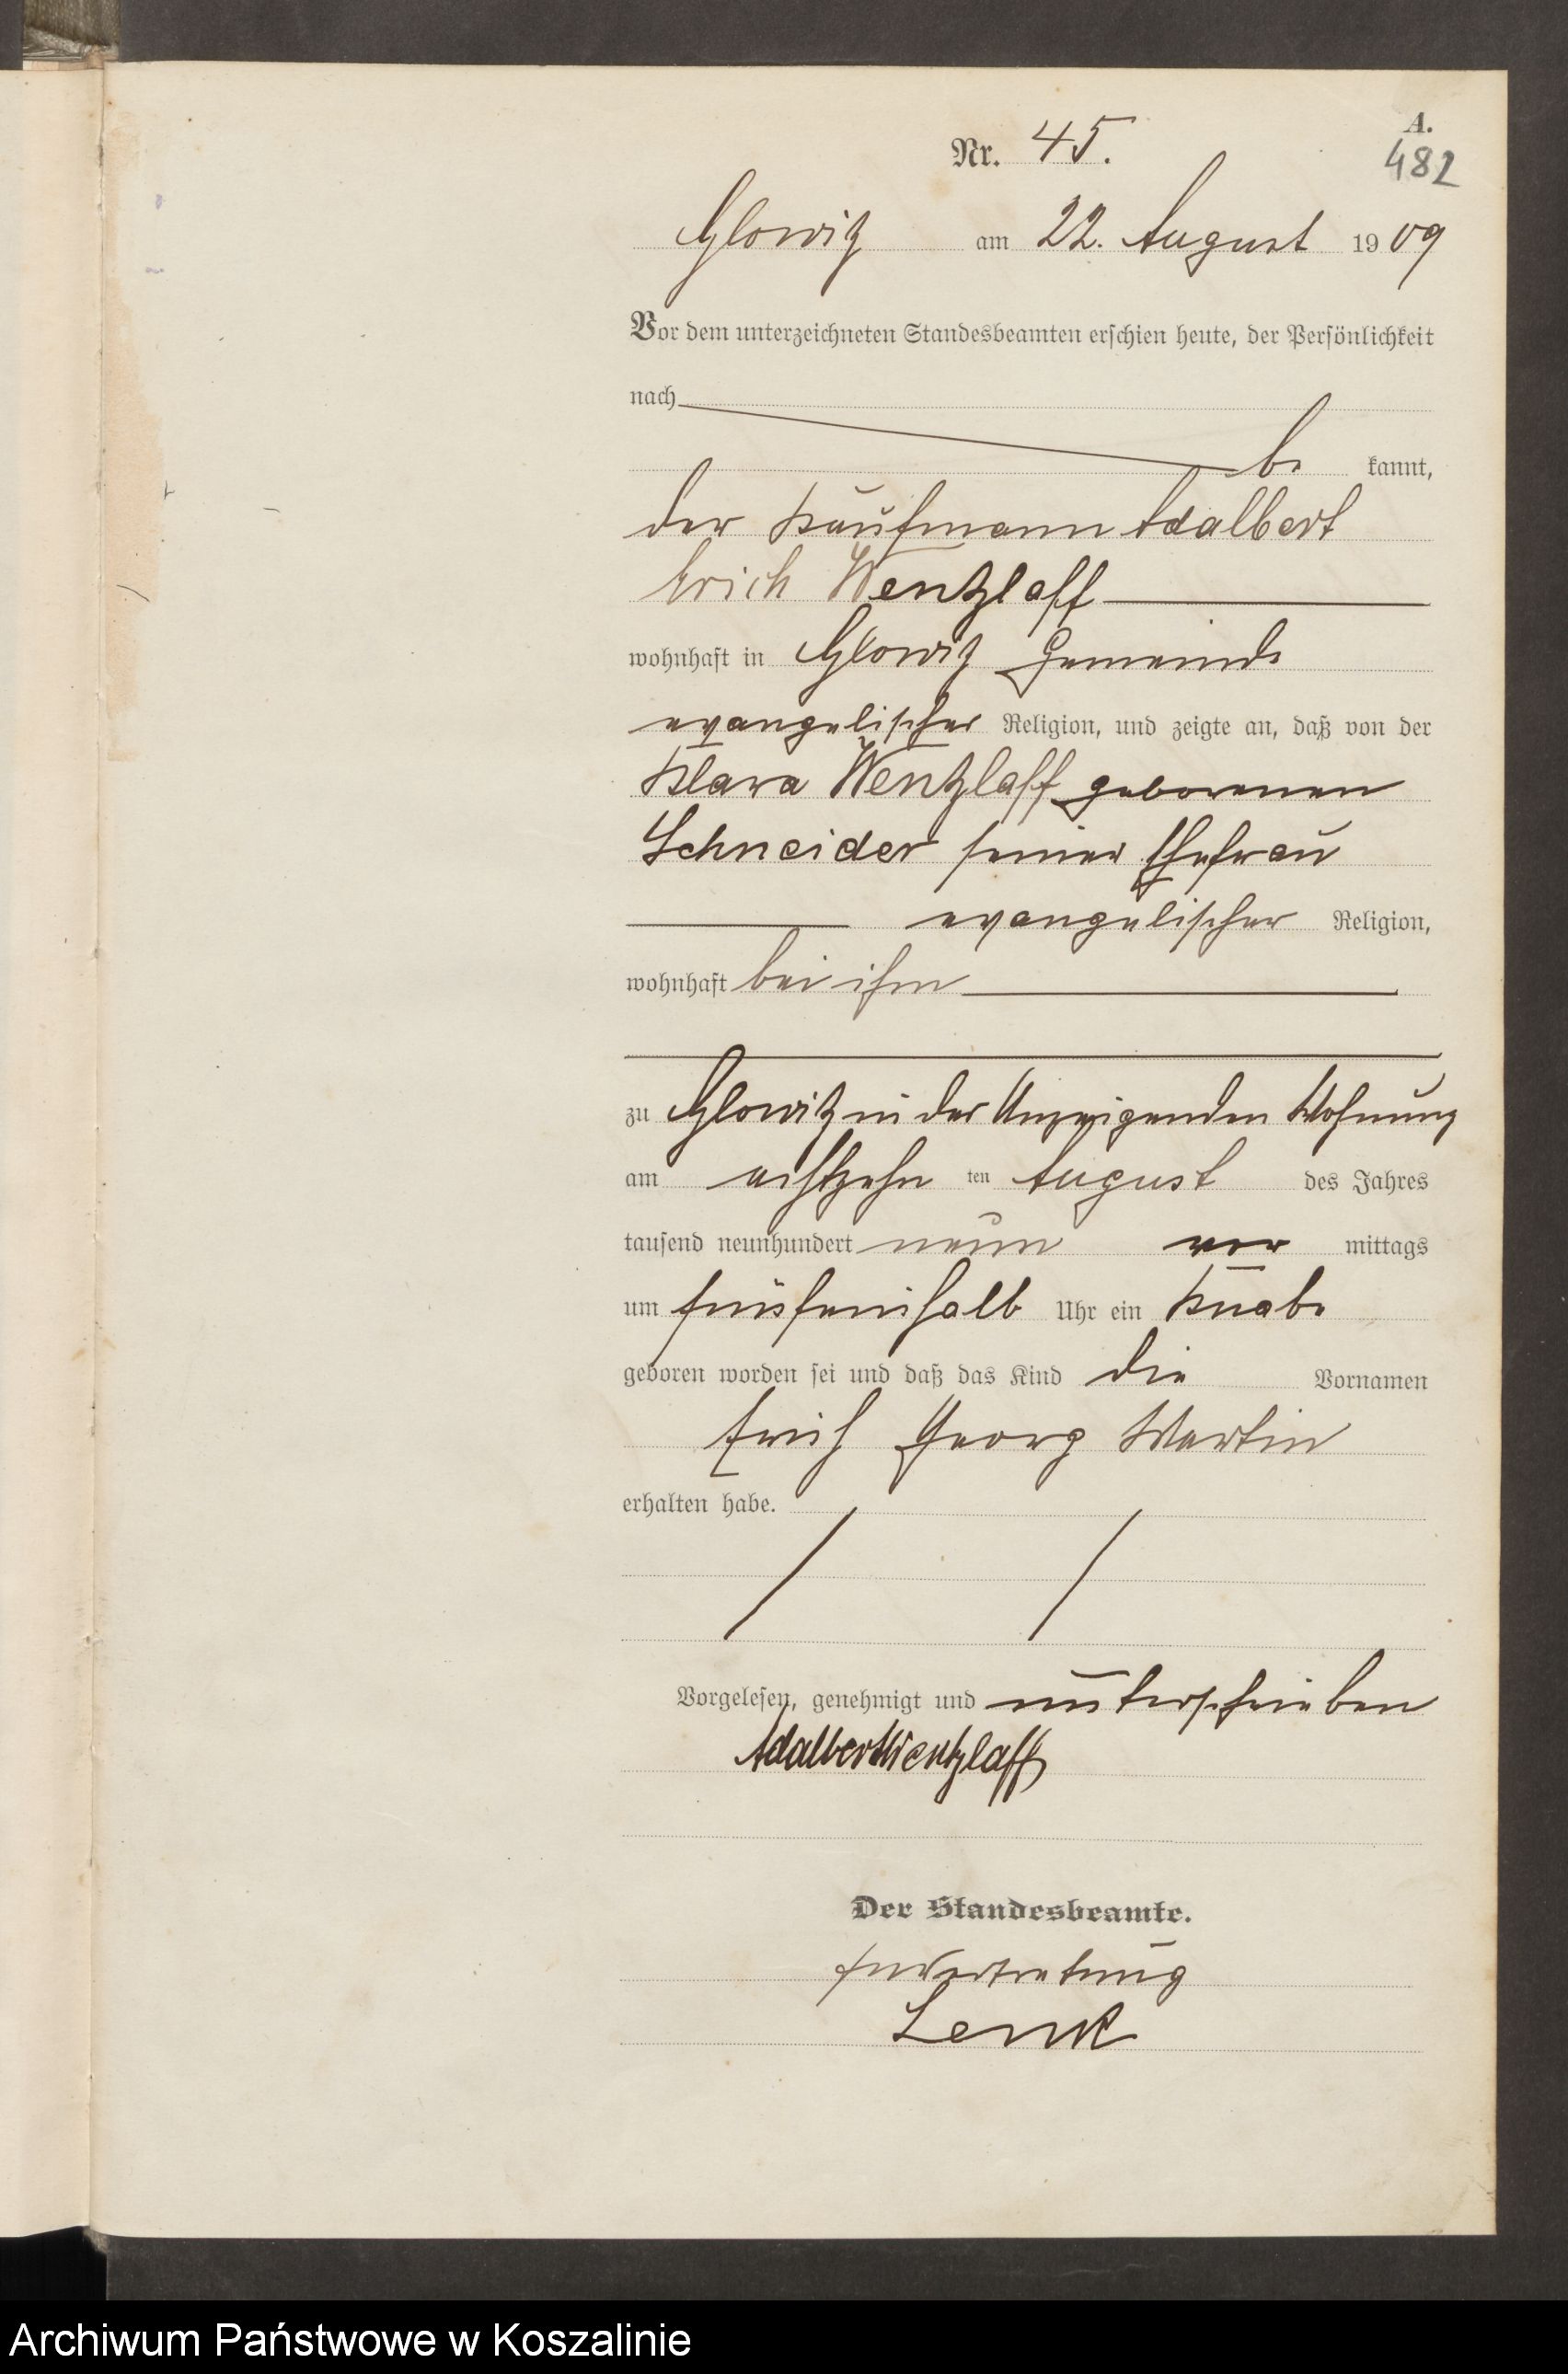 A.
Nr. 45.
482
Glowitz am 22. August 1909
Vor dem unterzeichneten Standesbeamten erschien heute, der Persönlichkeit
nach
be kannt,
der Kaufmann Adalbert
Erich Wentzlaff
wohnhaft in Glowitz Gemeinde
evangelischer Religion, und zeigte an, daß von der
Klara Wentzlaff geborenen
Schneider seiner Ehefrau
evangelischer Religion,
wohnhaft bei ihm
zu Glowitz in der Anzeigenden Wohnung
am achtzehn ten August des Jahres
tausend neunhundert neun vor mittags
um fünfeinhalb Uhr ein Knabe
geboren worden sei und daß das Kind die Vornamen
Erich Georg Martin
erhalten habe.
Vorgelesen, genehmigt und unterschrieben
Adalbert Wentzlaff
Der Standesbeamte.
In Vertretung
Lenk
Archiwum Państwowe w Koszalinie